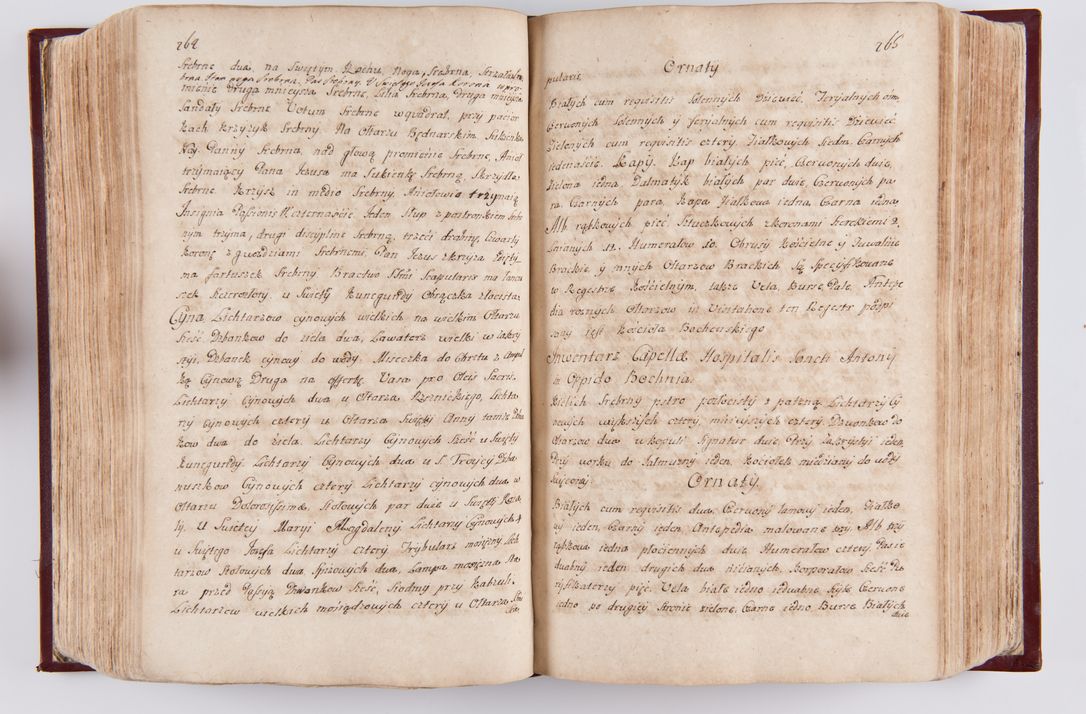 264
Srebrne dwa, na Swiętym Rochu, Noga, Srebrna, Strzała Sre-
brna
mienie Druga mnieysza Srebrne, Lilia Srebrna, Druga mnieysza
Sandały Srebrne Votum Srebrne wquadrat, przy pacior
kach krzyżyk Srebny. Na Ołtarzu Bednarskim Sukienka
Nay Panny Srebrna, nad głową promienie Srebrne, Anioł
trzymaiący Pana Jezusa ma Sukienkę Srebrną, Skrzydła
Srebrne. Krzysz in medio Srebrny, Aniołowie trzymaią
Insignia Passionis czternaście. Jeden Słup z postronkiem Srebr
nym trzyma, drugi disciplinę Srebrną, trzeci drabinę, czwarty
koronę z gwoździami Srebrnemi, Pan Jezus zkrzyża zdięty
ma fartuszek Srebrny. Bractwo Sźmi Scapularis ma łancu
szek Szczerozłoty, u Swięty Kunegundy Obrączka złocista.
Cyna Lichtarzow cynowych wielkich na wielkim Ołtarzu
Sześć Dzbankow do ziela dwa, Lawaterz wielki w Zakry
styi, Dzbanek cynowy do wody. Miseczka do Chrztu z Ampuł
ką Cynową Druga na offertę. Vasa pro Oleis Sacris.
Lichtarzy Cynowych dwa u Ołtarza Rzeznickiego, Lichta
rzy cynowych cztery u Ołtarza Swięty Anny tamże Dzban
kow dwa do ziela. Lichtarzy Cynowych Sześć u Swięty
Kunegundy. Lichtarzy Cynowych dwa u S. Troycy Dzba
nuszkow Cynowych cztery Lichtarzy cynowych dwa w
Ołtarzu Dolorosissimæ, Stołowych par dwie u Swięty
u Swiętey Maryi Magdaleny Lichtarzy Cynowych 4
u Swiętego Josefa Lichtarzy cztery Trybularz mosiężny Lich
tarzow Stołowych dwa, Spiżowych dwa, Lampa mosiężna Sta
ra przed Passyą Dzwonkow Sześć, Siodmy przy Zakrystii.
Lichtarzow wielkich mosiądzowych cztery u Ołtarza
265
pularis. Ornaty
Białych cum requisitis Solennych Dziewięć, Feryalnych ośm,
Czerwonych Solennych y feryalnych cum requisitis Dziewięć
Zielonych cum requisitis cztery, Fiałkowych Siedm, Czarnych
iedenaście. Kapy. Kap białych pięć, Czerwonych dwie,
Zielona iedna, Dalmatyk białych par dwie, Czerwonych pa
ra, Czarnych para, Kapa Fiałkowa iedna, Czarna iedna
Alb rąbkowych pięć Sztuczkowych zkoronami Szerokiemi 2,
lnianych 12. Humerałow 10. Obrusy Kościelne y Tuwalnie
Brackie, y innych Ołtarzow Brackich Są Specyfikowane
w Regestrze Kościelnym, także Vela, Bursę Pale, Antepe
dia roznych Ołtarzow in Visitatione ten Rejestr podpi
sany iest Kościoła Bochenskiego
Inwentarz Capellæ Hospitalis Sancti Antony
in Oppido Bochnia.
Kielich Srebrny pstro pozłocisty z pateną Lichtarzy Cy
nowych większych cztery, mnieyszych cztery, Dzwonkow do
Ołtarzow dwa w kopuli Signatur dwie, Przy Zakrystyi ieden,
Przy worku do Jałmużny ieden, Kociołek miedziany do wody
Swięconey. Ornaty.
Białych cum requisitis dwa, Czerwony lamowy ieden, Fiałko
wy ieden, Czarny ieden Antepedia malowane trzy, Alb trzy
rąbkowa iedna płociennych dwie, Humerałow cztery, Pasie
dwabny ieden drugich dwa nicianych, Korporałow Sześć Pu
ryfikaterzy pięć. Vela białe iedno iedwabne, Ryte Czerwone
iedno po drugiey Stronie zielone, Czarne iedno Bursę Białych
dwie